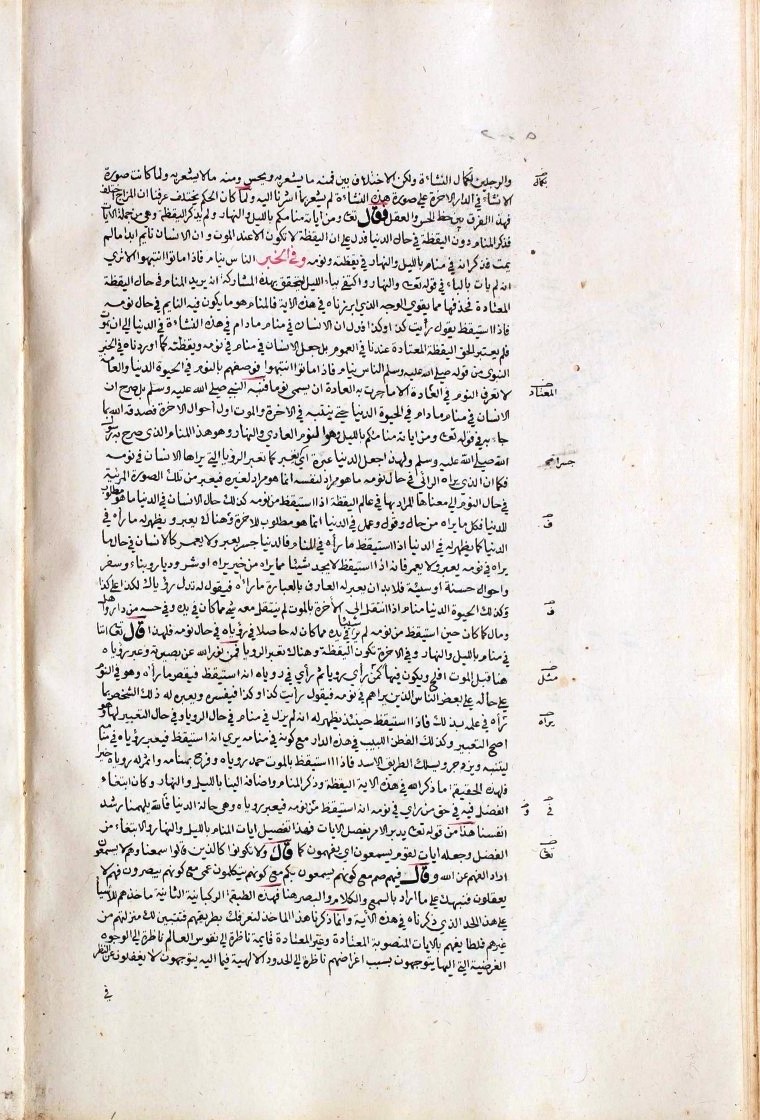 والرجلين لكمال النشاءة ولكن الاختلاف بين فمنه ما يشعر به ويحس ومنه مالا يشعر به ولما كانت صورة
الانشاء في الدار الاخرة على صورة هذه النشاءة لم يشعر بما اشرنا اليه ولما كان الحكم يختلف عرفنا ان المزاج اختلف
فهذا الفرق بين حظ الحس والعقل فقال تعالى ومن اياته منامكم بالليل والنهار ولم يذكر اليقظة وهي من جملة الايات
فذكر المنام دون اليقظة في حال الدنيا فدل على ان اليقظة لا تكون الا عند الموت وان الانسان نايم ابدا ما لم
يمت فذكر انه في منام بالليل والنهار في يقظته ونومه وفي الخبر الناس نيام فاذا ماتوا انتبهوا الا ترى
انه لم يات بالباء في قوله تعالى والنهار واكتفى بباء الليل ليتحقق بهذه المشاركة انه يريد المنام في حال اليقظة
المعتادة فحذفها مما يقوي الوجه الذي ابرزناه في هذه الاية فالمنام هو ما يكون فيه النايم في حال نومه
فاذا استيقظ يقول رأيت كذا وكذا فدل ان الانسان في منام ما دام في هذه النشاءة في الدنيا الى ان يموت
فلم يعتبر الحق اليقظة المعتادة عندنا في العموم بل جعل الانسان في منام في نومه ويقظته كما اوردناه في الخبر
النبوي من قوله صلى الله عليه وسلم الناس نيام فاذا ماتوا انتبهوا فوصفهم بالنوم في الحيوة الدنيا والعامة
لا تعرف النوم في العادة الا ما جرت به العادة ان يسمى نوما فنبه النبي صلى الله عليه وسلم بل صرح ان
الانسان في منام ما دام في الحيوة الدنيا حتى ينتبه في الاخرة والموت اول احوال الاخرة فصدقه الله بما
جاء به في قوله تعالى ومن اياته منامكم بالليل وهو النوم العادي والنهار وهو هذا المنام الذي صرح به رسول
الله صلى الله عليه وسلم ولهذا جعل الدنيا عبرة اي تعبر كما تعبر الرؤيا التي يراها الانسان في نومه
فكما ان الذي يراه الرائي في حال نومه ما هو مراد لنفسه انما هو مراد لغيره فيعبر من تلك الصورة المرئية
في حال النوم الى معناها المراد بها في عالم اليقظة اذا استيقظ من نومه كذلك حال الانسان في الدنيا ما هو مطلوب
للدنيا فكل ما يراه من حال وقول وعمل في الدنيا انما هو مطلوب للاخرة وهناك يعبر ويظهر له ما رأه في
الدنيا كما يظهر له في الدنيا اذا استيقظ ما رأه في المنام فالدنيا جسر يعبر ولا يعمر كالانسان في حال ما
يراه في نومه يعبر ولا يعمر فاذا استيقظ لا يجد شيئا مما يراه من خير يراه او شر وديار وبناء وسفر
واحوال حسنة او سيئة فلا بد ان يعبر له العارف بالعبارة ما رأه فيقول له تدل رؤياك لكذا على كذا
وكذلك الحيوة الدنيا منام اذا انتقل الى الآخرة بالموت لم ينتقل معه شيء مما كان في يده وفي حسه من دار واهل
ومال كما كان حين استيقظ من نومه لم ير شيئا في يده مما كان له حاصلا في رؤياه في حال نومه فلهذا قال تعالى اننا
في منام بالليل والنهار وفي الاخرة تكون اليقظة وهناك تعبر الرويا فمن نور الله عين بصيرته وعبر رؤياه
هنا قبل الموت افلح ويكون فيها كمن رأى رويا ثم رأى في روياه انه استيقظ فيقص ما رأه وهو في النوم
على حاله على بعض الناس الذين يراهم في نومه فيقول رأيت كذا وكذا فيفسره ويعبره له ذلك الشخص بما
يراه في علمه بذلك فاذا استيقظ حينئذ يظهر له انه لم يزل في منام في حال الرويا وفي حال التعبير لها وهو
اصح التعبير وكذلك الفطن اللبيب في هذه الدار مع كونه في منامه يرى انه استيقظ فيعبر رؤياه في منامه
لينتبه ويزدجر ويسلك الطريق الاسد فاذا استيقظ بالموت حمد روياه وفرح بمنامه واثمرت له روياه خيرا
فلهذه الحقيقة ما ذكر الله في هذه الاية اليقظة وذكر المنام واضافه الينا بالليل والنهار وكان ابتغاء
الفضل فيه في حق من راى في نومه انه استيقظ من نومه فيعبر روياه وهي حالة الدنيا فالله يلهمنا رشد
انفسنا هذا من قوله تعالى يدبر الامر يفصل الايات فهذا تفصيل ايات المنام بالليل والنهار والابتغاء من
الفضل وجعله ايات لقوم يسمعون اي يفهمون كما قال ولا تكونوا كالذين قالوا سمعنا وهم لا يسمعون
اراد الفهم عن الله وقال فيهم صم مع كونهم يسمعون بكم مع كونهم يتكلمون عمى مع كونهم يبصرون فهم لا
يعقلون فنبهك على ما اراد بالسمع والكلام والبصر هنا فهذه الطبقة الركبانية الثانية ماخذهم للاشياء
على هذا الحد الذي ذكرناه في هذه الآية وانما ذكرنا هذا الماخذ لنعرفك بطريقهم فتتبين لك منزلتهم من
غيرهم فلطايفهم بالايات المنصوبة المعتادة وغير المعتادة قايمة ناظرة الى نفوس العالم ناظرة الى الوجوه
الغرضية التي اليها يتوجهون بسبب اغراضهم ناظرة الى الحدود الالهية فيما اليه يتوجهون لا يغفلون عن النظر
في
المعتاد
مثل
يراه
في
تعالى